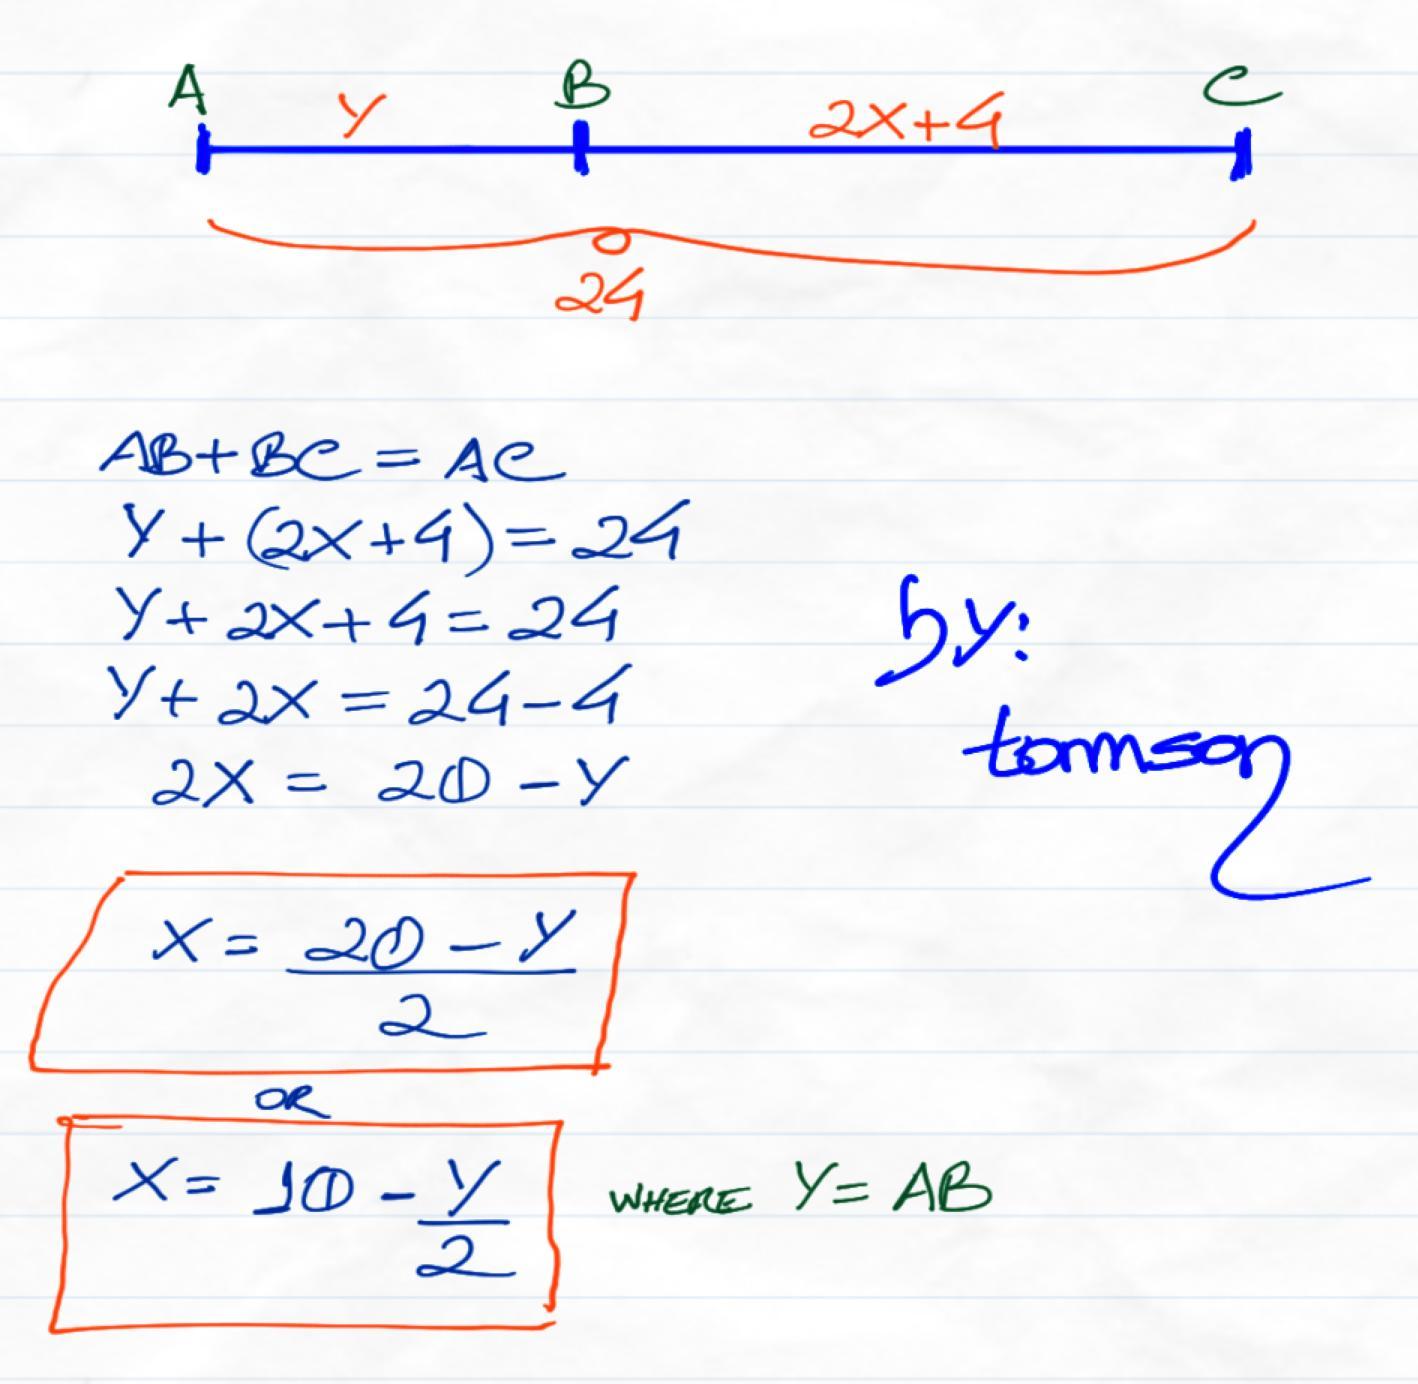 A B C
Y 2X+4
24
AB+BC = AC
Y + (2X+4) = 24
Y + 2X + 4 = 24
Y + 2X = 24-4
2X = 20 - Y
by:
tommson
X = 20 - Y
2
OR
X = 10 - Y
2
WHERE Y = AB